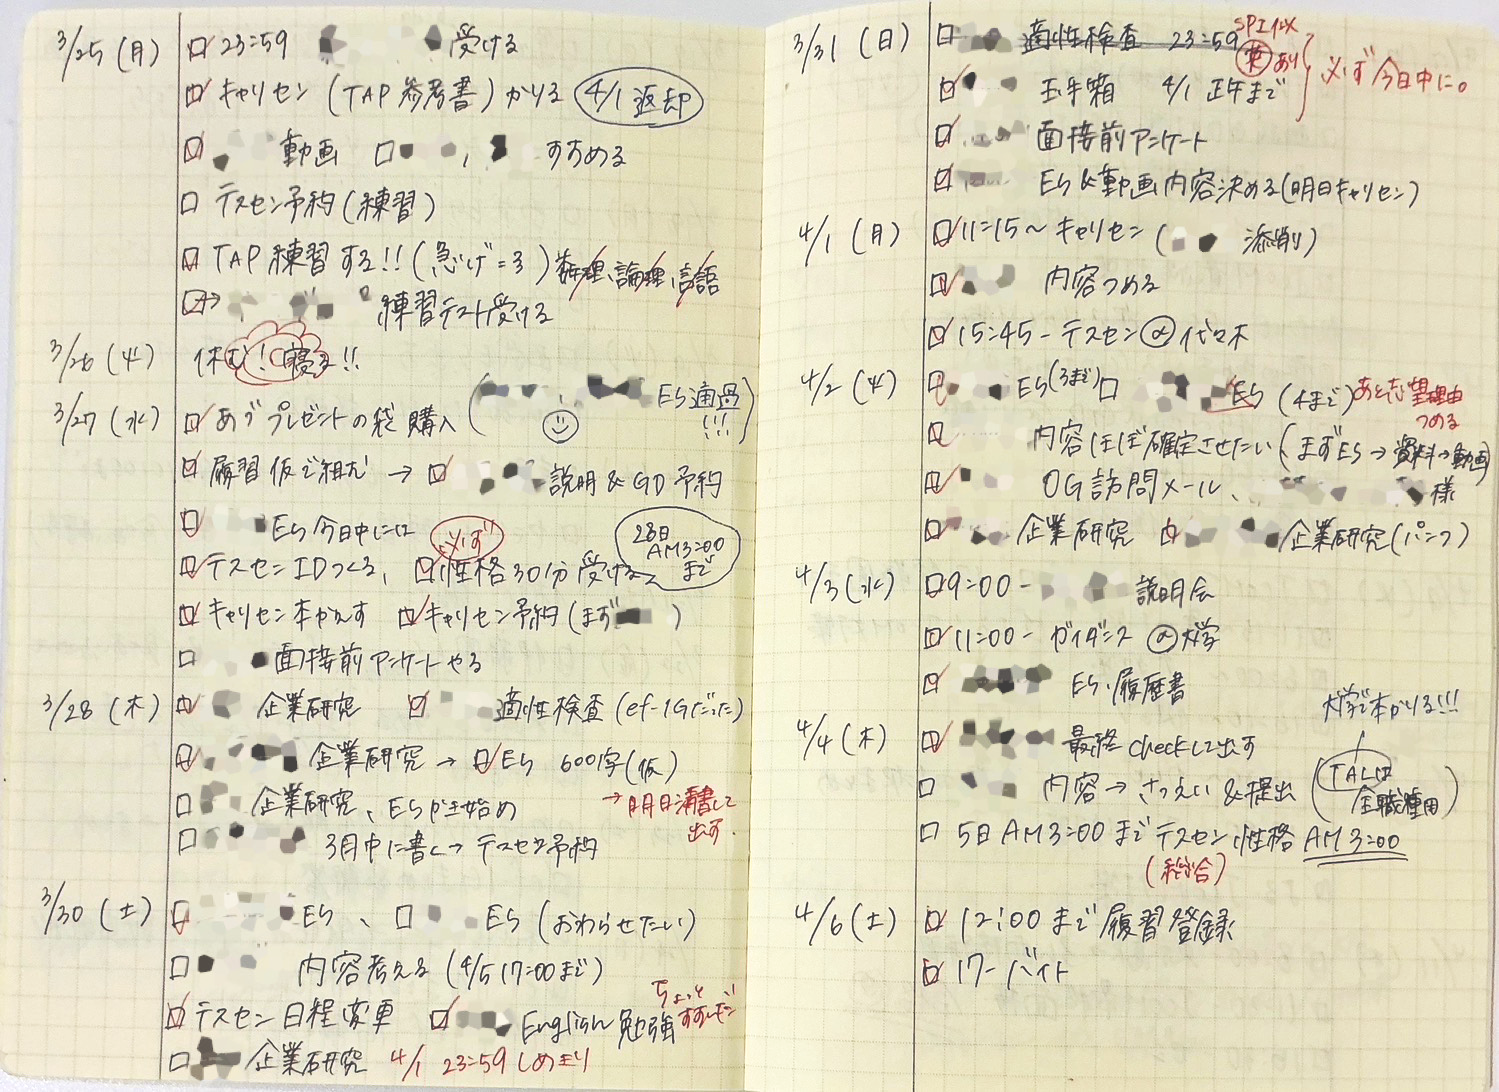 3/25 (月) 23:59 受ける
キャリセン (TAP 参考書) かりる 4/1 返却
動画 、 すすめる
テスセン予約 (練習)
TAP 練習する!! (急げ=3) 数理、論理、言語
→ 練習テスト受ける
3/26 (火) 休む! 寝る!!
3/27 (水) プレゼントの袋 購入 ( ES通過!!! )
履習 仮で組む → 説明 & GD 予約
ES 今日中には 必ず
テスセン IDつくる、 性格30分 受ける 28日 AM3:00 まで
キャリセン 本かえす キャリセン予約 (まず )
面接前アンケートやる
3/28 (木) 企業研究 適性検査 (ef-1Gだった)
企業研究 → ES 600字(仮)
→ 明日清書して出す.
企業研究、ESかき始め
3月中に書く→ テスセン予約
3/30 (土) ES 、 ES (おわらせたい)
内容考える (4/5 17:00まで)
テスセン 日程変更 English 勉強 ちょっとすすんだ!
企業研究 4/1 23:59 しめきり
3/31 (日) 適性検査 23:59 SPI 英あり
玉手箱 4/1 正午まで 必ず今日中に。
面接前アンケート
ES & 動画 内容決める (明日キャリセン)
4/1 (月) 11:15〜 キャリセン ( 添削)
内容つめる
15:45- テスセン @ 代々木
4/2 (火) ES (3まで) ES (4まで) あと志望理由つめる
内容ほぼ確定させたい (まずES→資料→動画)
OG訪問メール、 様
企業研究 企業研究 (パンフ)
4/3 (水) 9:00- 説明会
11:00- ガイダンス @大学
ES、履歴書
大学で本かりる!!!
4/4 (木) 最終checkして出す
内容→ さつえい & 提出 (TALは全職種用)
5日 AM3:00 まで テスセン 性格 AM3:00
(総合)
4/6 (土) 12:00 まで 履習登録
17- バイト